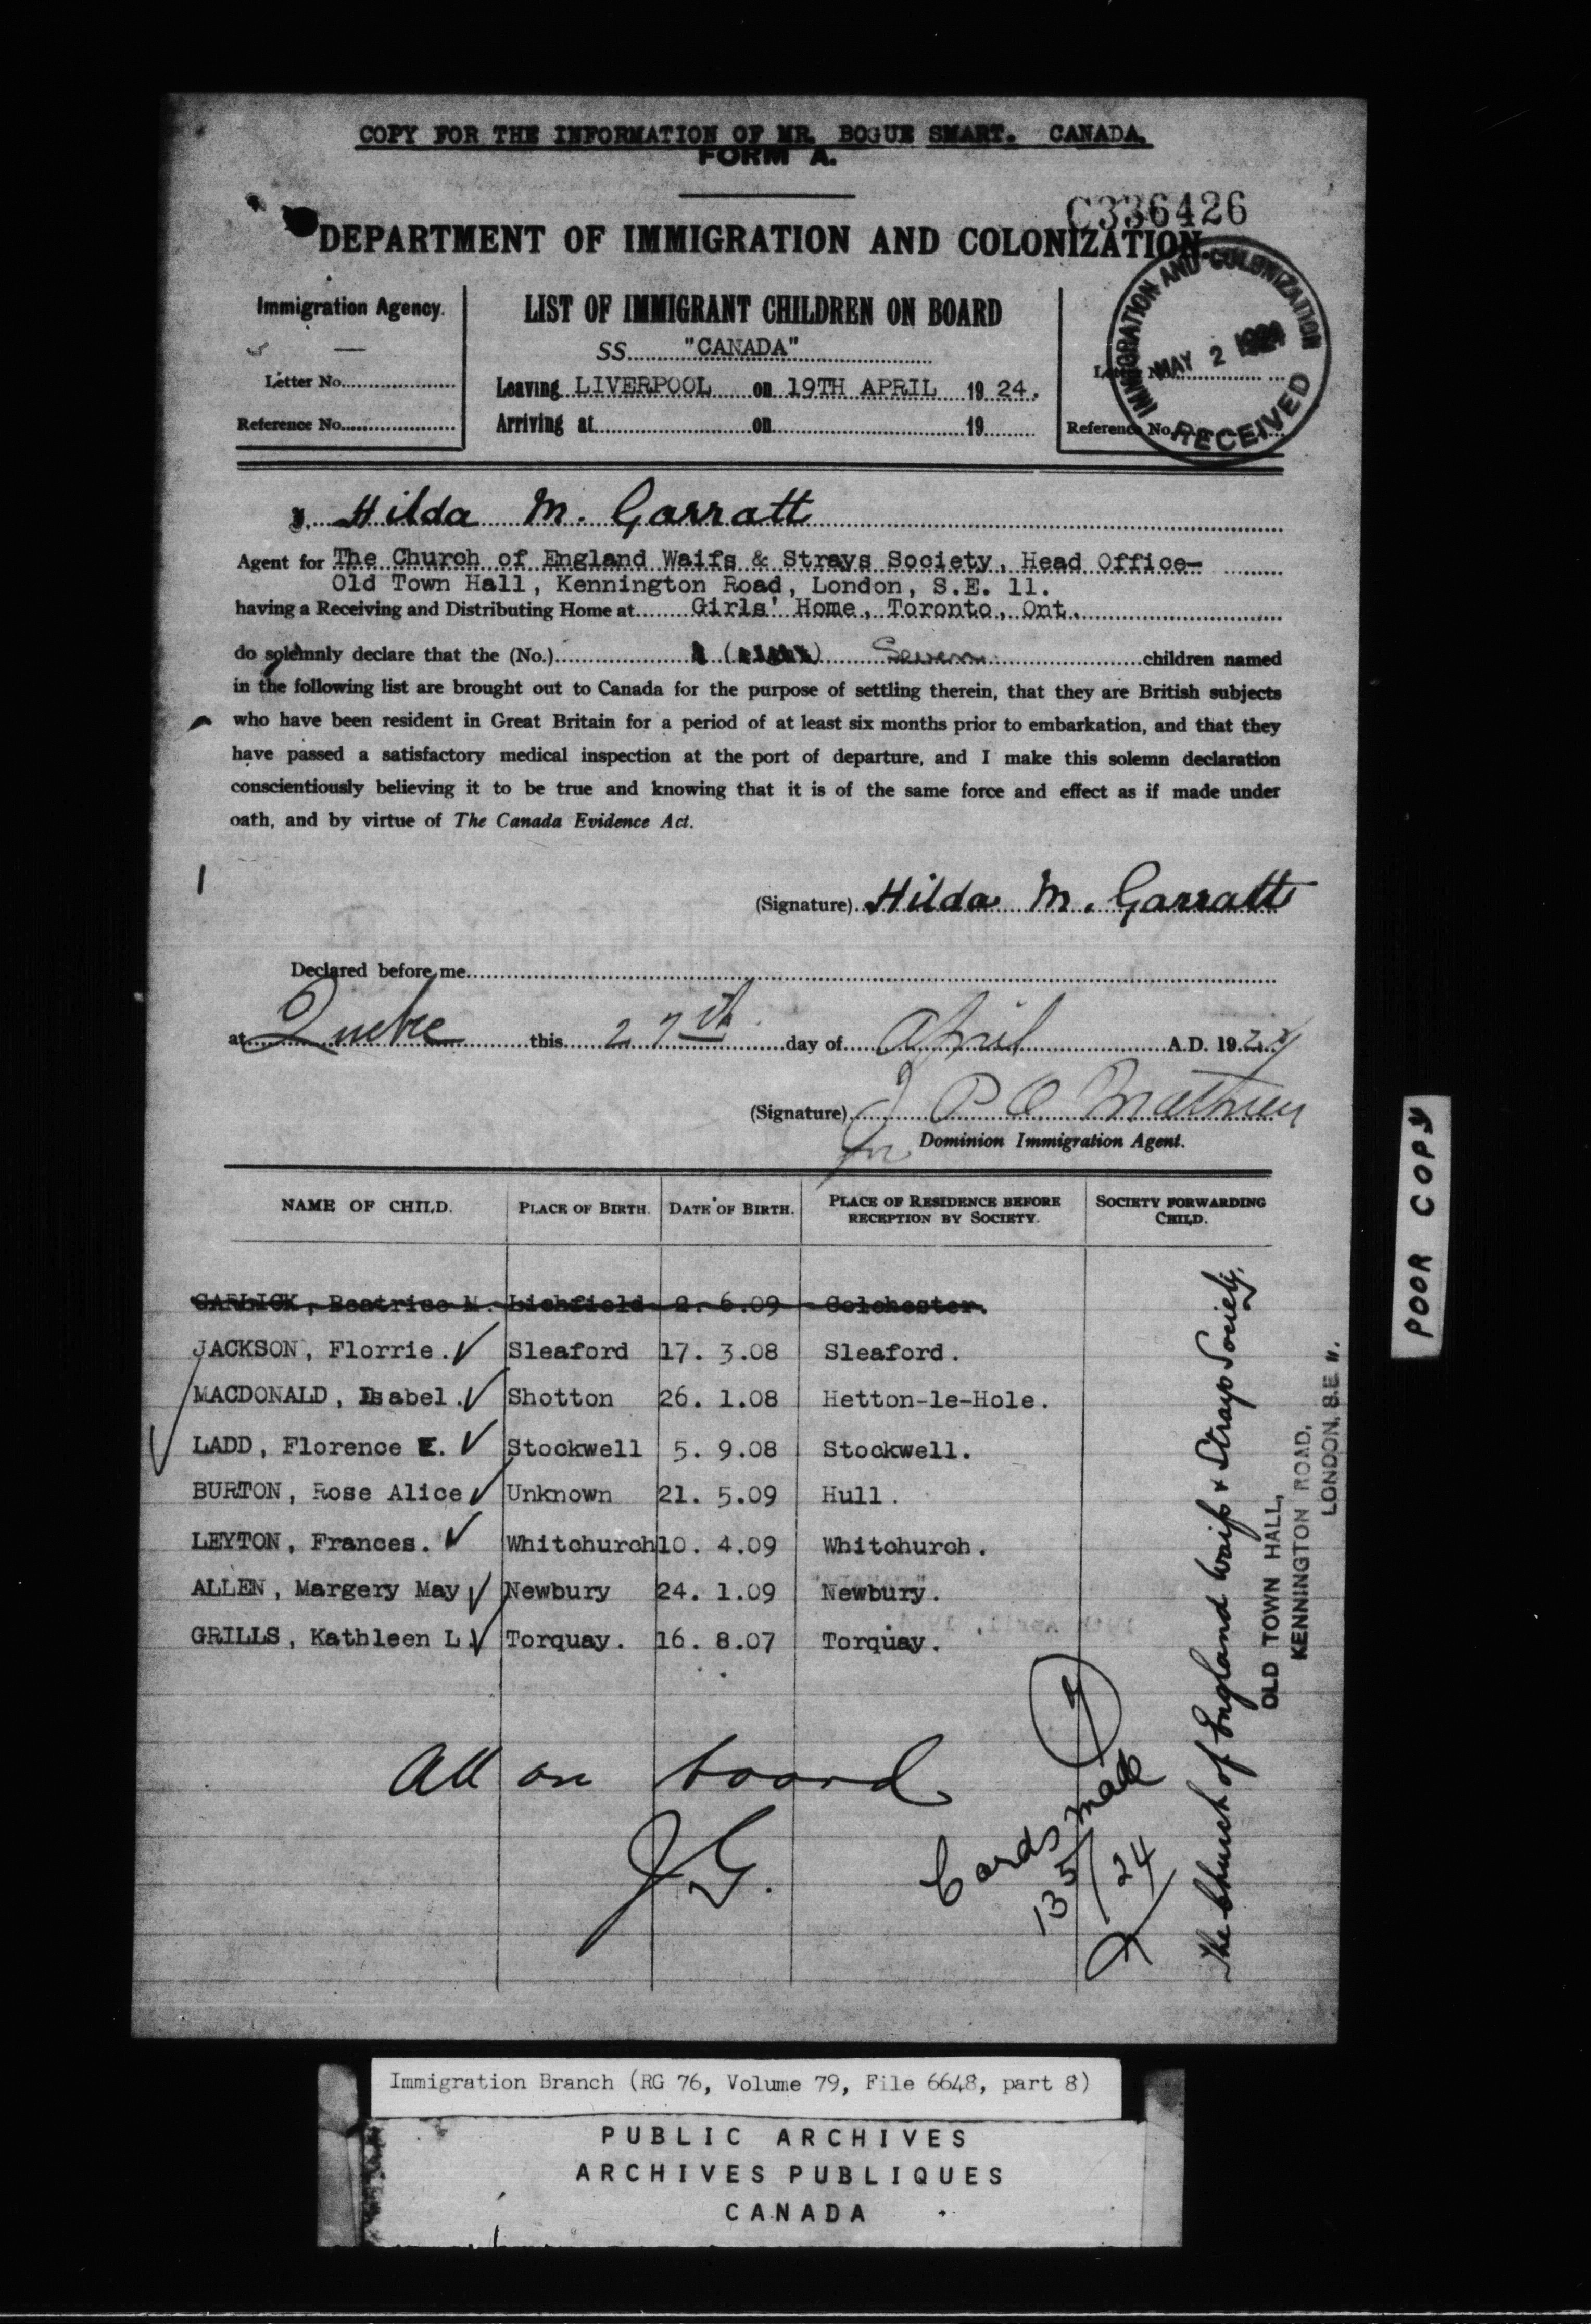 COPY FOR THE INFORMATION OF MR. BOGUE SMART. CANADA.
FORM A.
C336426
DEPARTMENT OF IMMIGRATION AND COLONIZATION.
Immigration Agency.
Letter No.
Reference No.
LIST OF IMMIGRANT CHILDREN ON BOARD
SS "CANADA"
Leaving LIVERPOOL on 19TH APRIL 19 24.
Arriving at on 19
Letter No.
Reference No.
IMMIGRATION AND COLONIZATION
MAY 2 1924
RECEIVED
I, Hilda M. Garratt
Agent for The Church of England Waifs & Strays Society, Head Office-
Old Town Hall, Kennington Road, London, S.E. 11.
having a Receiving and Distributing Home at Girls' Home, Toronto, Ont.
do solemnly declare that the (No.) Seven children named
in the following list are brought out to Canada for the purpose of settling therein, that they are British subjects
who have been resident in Great Britain for a period of at least six months prior to embarkation, and that they
have passed a satisfactory medical inspection at the port of departure, and I make this solemn declaration
conscientiously believing it to be true and knowing that it is of the same force and effect as if made under
oath, and by virtue of The Canada Evidence Act.
(Signature) Hilda M. Garratt
Declared before me
at Quebec this 27th day of April A.D. 1924
(Signature) J P O Mathieu
for Dominion Immigration Agent.
NAME OF CHILD. PLACE OF BIRTH. DATE OF BIRTH. PLACE OF RESIDENCE BEFORE RECEPTION BY SOCIETY. SOCIETY FORWARDING CHILD.
GARLICK, Beatrice M. Lichfield 2. 6.09 Colchester.
JACKSON, Florrie. ✓ Sleaford 17. 3.08 Sleaford.
MACDONALD, Isabel. ✓ Shotton 26. 1.08 Hetton-le-Hole.
LADD, Florence E. ✓ Stockwell 5. 9.08 Stockwell.
BURTON, Rose Alice ✓ Unknown 21. 5.09 Hull.
LEYTON, Frances. ✓ Whitchurch 10. 4.09 Whitchurch.
ALLEN, Margery May ✓ Newbury 24. 1.09 Newbury.
GRILLS, Kathleen L. ✓ Torquay. 16. 8.07 Torquay.
The Church of England Waifs & Strays Society,
OLD TOWN HALL,
KENNINGTON ROAD,
LONDON, S.E. 11.
7
All on board
J.G.
Cards made
13/5/24
POOR COPY
Immigration Branch (RG 76, Volume 79, File 6648, part 8)
PUBLIC ARCHIVES
ARCHIVES PUBLIQUES
CANADA